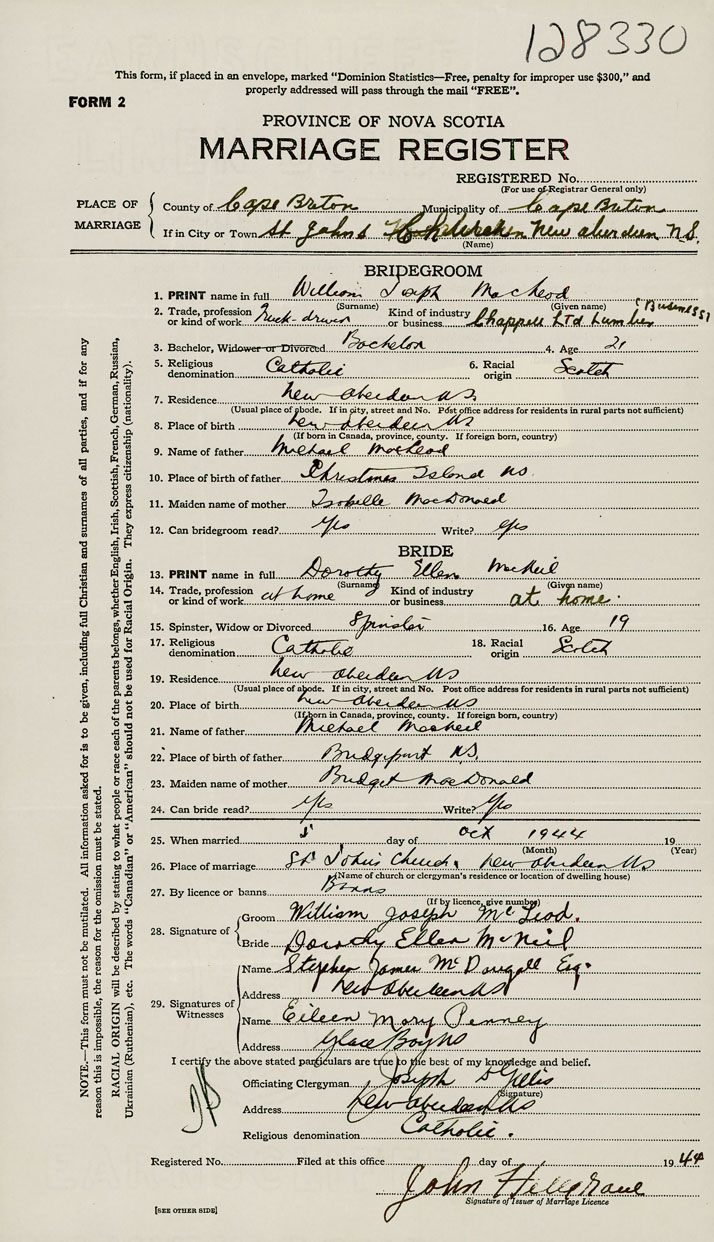 128330
This form, if placed in an envelope, marked "Dominion Statistics—Free, penalty for improper use $300," and
properly addressed will pass through the mail "FREE".
FORM 2
PROVINCE OF NOVA SCOTIA
MARRIAGE REGISTER
REGISTERED No.
(For use of Registrar General only)
PLACE OF MARRIAGE
County of Cape Breton Municipality of Cape Breton
If in City or Town St Johns New Aberdeen N.S.
(Name)
BRIDEGROOM
1. PRINT name in full William Joseph MacLeod
(Surname) (Given name)
2. Trade, profession or kind of work Truck-driver Kind of industry or business Chappell Ltd Lumber (Business)
3. Bachelor, Widower or Divorced Bachelor 4. Age 21
5. Religious denomination Catholic 6. Racial origin Scotch
7. Residence New Aberdeen NS.
(Usual place of abode. If in city, street and No. Post office address for residents in rural parts not sufficient)
8. Place of birth New Aberdeen NS
(If born in Canada, province, county. If foreign born, country)
9. Name of father Michael MacLeod
10. Place of birth of father Christmas Island NS
11. Maiden name of mother Isabelle MacDonald
12. Can bridegroom read? Yes Write? Yes
BRIDE
13. PRINT name in full Dorothy Ellen MacNeil
(Surname) (Given name)
14. Trade, profession or kind of work at home Kind of industry or business at home.
15. Spinster, Widow or Divorced Spinster 16. Age 19
17. Religious denomination Catholic 18. Racial origin Scotch
19. Residence New Aberdeen NS
(Usual place of abode. If in city, street and No. Post office address for residents in rural parts not sufficient)
20. Place of birth New Aberdeen NS
(If born in Canada, province, county. If foreign born, country)
21. Name of father Michael MacNeil
22. Place of birth of father Bridgeport N.S.
23. Maiden name of mother Bridget MacDonald
24. Can bride read? Yes Write? Yes
25. When married 5 day of Oct 1944 19
(Month) (Year)
26. Place of marriage St. John's Church, New Aberdeen NS
(Name of church or clergyman's residence or location of dwelling house)
27. By licence or banns Banns
(If by licence, give number)
28. Signature of
Groom William Joseph McLeod.
Bride Dorothy Ellen McNeil
29. Signatures of Witnesses
Name Stephen James McDougall Esq.
Address New Aberdeen NS
Name Eileen Mary Penney
Address Glace Bay NS
I certify the above stated particulars are true to the best of my knowledge and belief.
Officiating Clergyman Joseph D Gillis
(Signature)
Address New Aberdeen NS
Religious denomination Catholic.
Registered No. Filed at this office day of 1944
John Hellgrane
Signature of Issuer of Marriage Licence
[SEE OTHER SIDE]
NOTE.—This form must not be mutilated. All information asked for is to be given, including full Christian and surnames of all parties, and if for any
reason this is impossible, the reason for the omission must be stated.
RACIAL ORIGIN will be described by stating to what people or race each of the parents belongs, whether English, Irish, Scottish, French, German, Russian,
Ukrainian (Ruthenian), etc. The words "Canadian" or "American" should not be used for Racial Origin. They express citizenship (nationality).